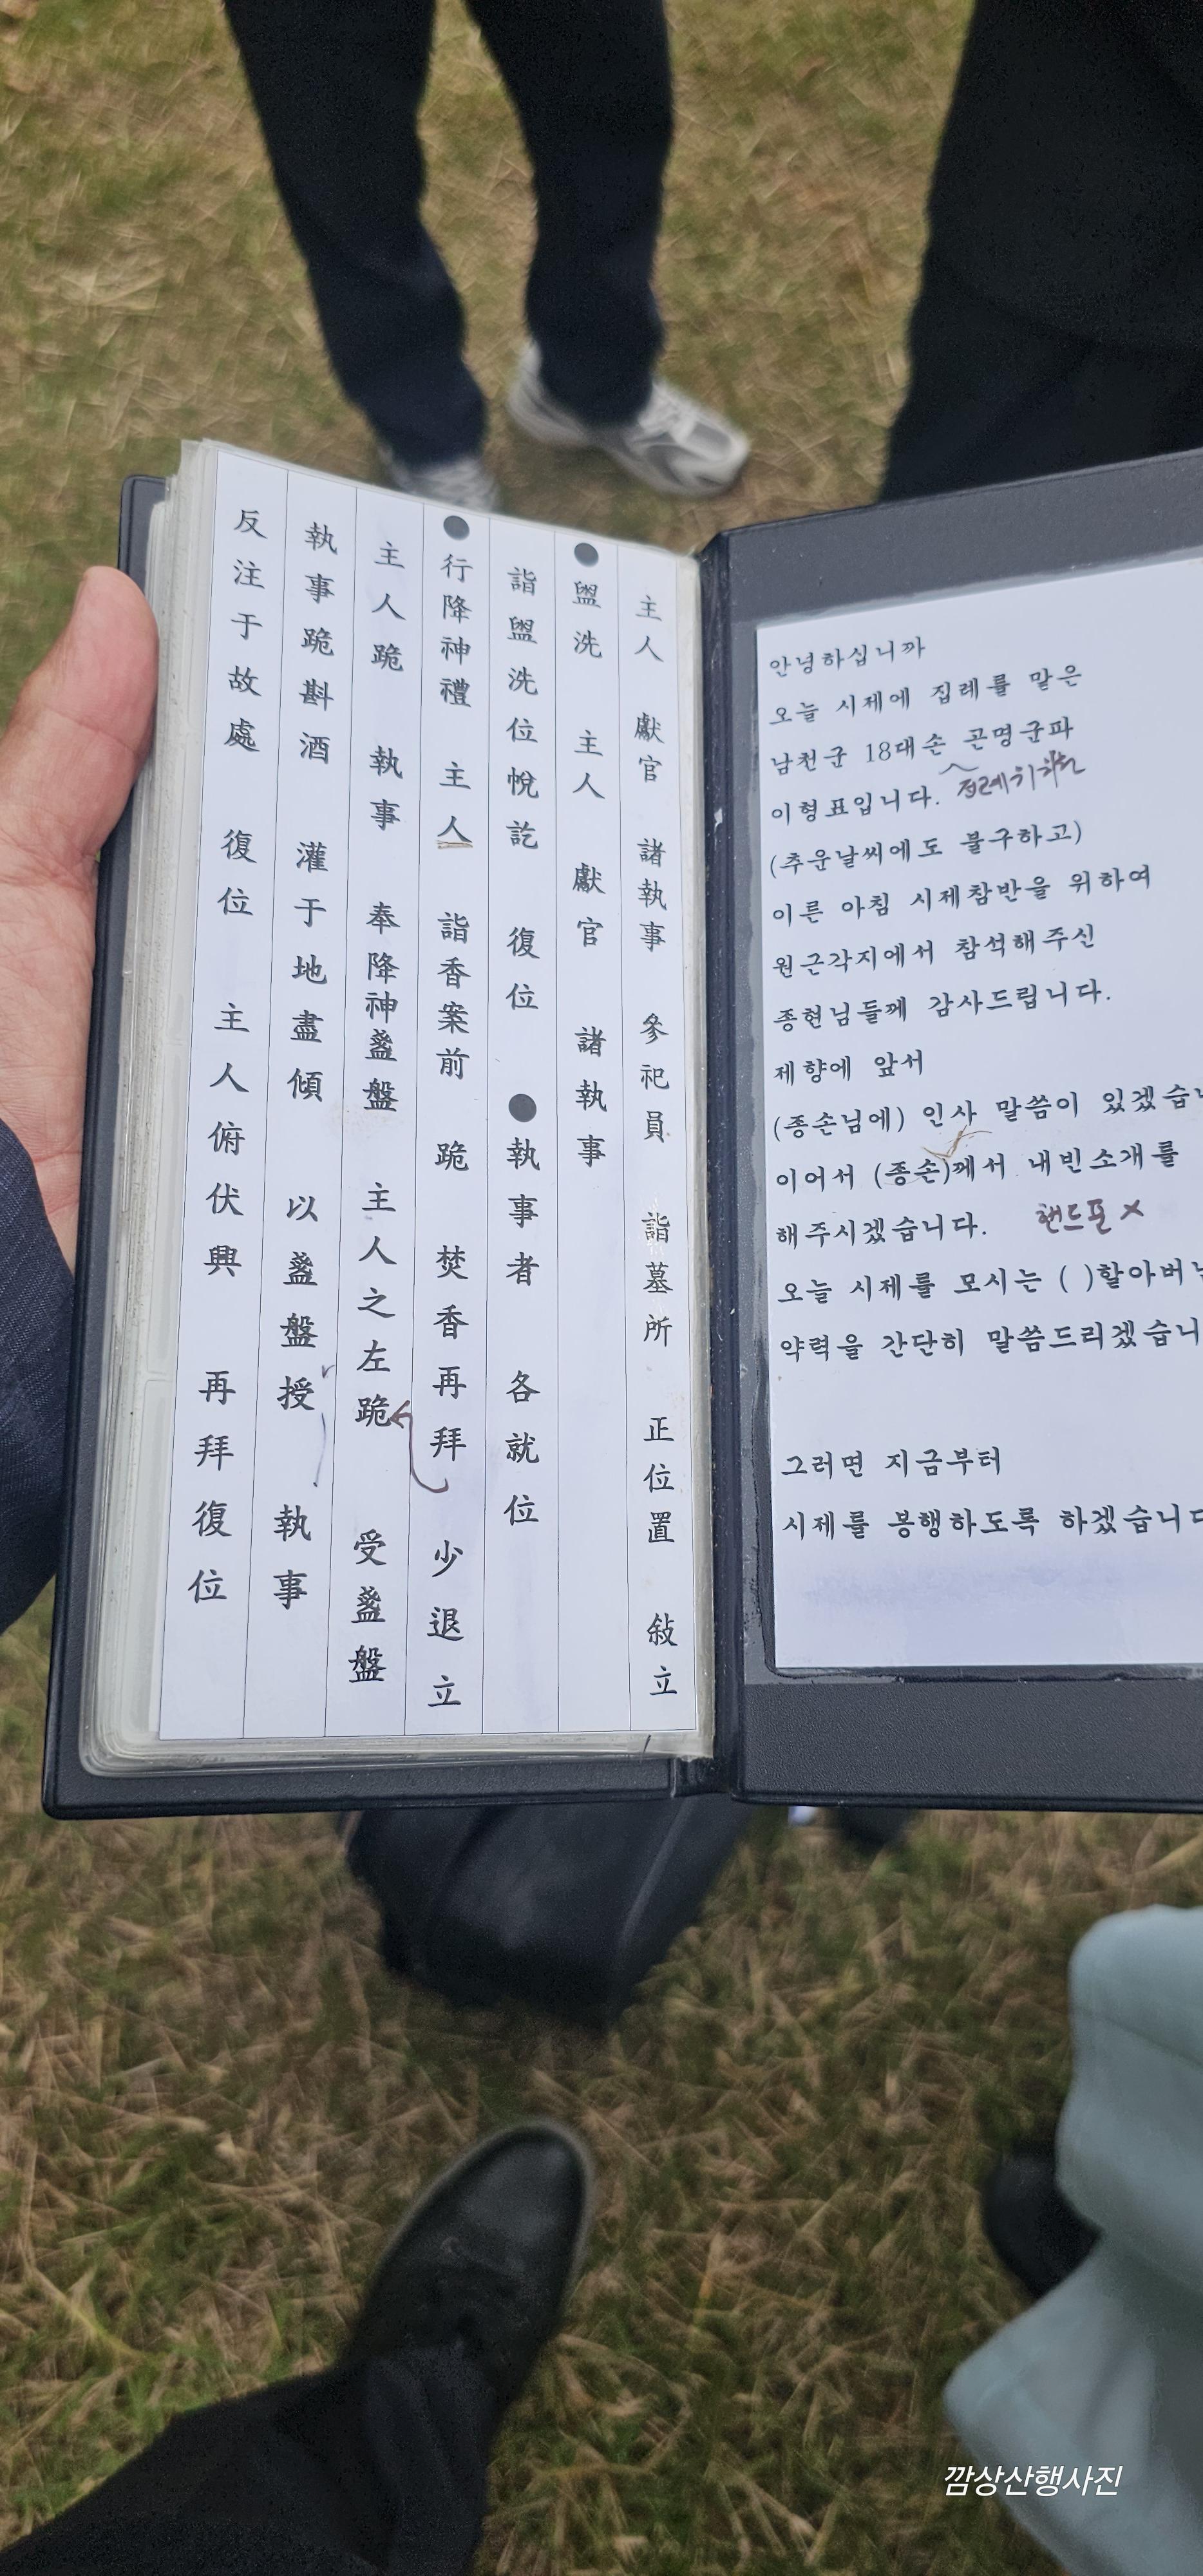 主人 獻官 諸執事 參祀員 詣墓所 正位置 敍立
●盥洗 主人 獻官 諸執事
詣盥洗位帨訖 復位 ●執事者 各就位
●行降神禮 主人 詣香案前 跪 焚香再拜 少退立
主人跪 執事 奉降神盞盤 主人之左跪 受盞盤
執事跪斟酒 灌于地盡傾 以盞盤授 執事
反注于故處 復位 主人俯伏興 再拜復位
안녕하십니까
오늘 시제에 집례를 맡은
남천군 18대손 곤명군파
이형표입니다.
(추운날씨에도 불구하고)
이른 아침 시제참반을 위하여
원근각지에서 참석해주신
종현님들께 감사드립니다.
제향에 앞서
(종손님에) 인사 말씀이 있겠습
이어서 (종손)께서 내빈소개를
해주시겠습니다. 핸드폰 X
오늘 시제를 모시는 ( )할아버
약력을 간단히 말씀드리겠습니
그러면 지금부터
시제를 봉행하도록 하겠습니다
깜상산행사진